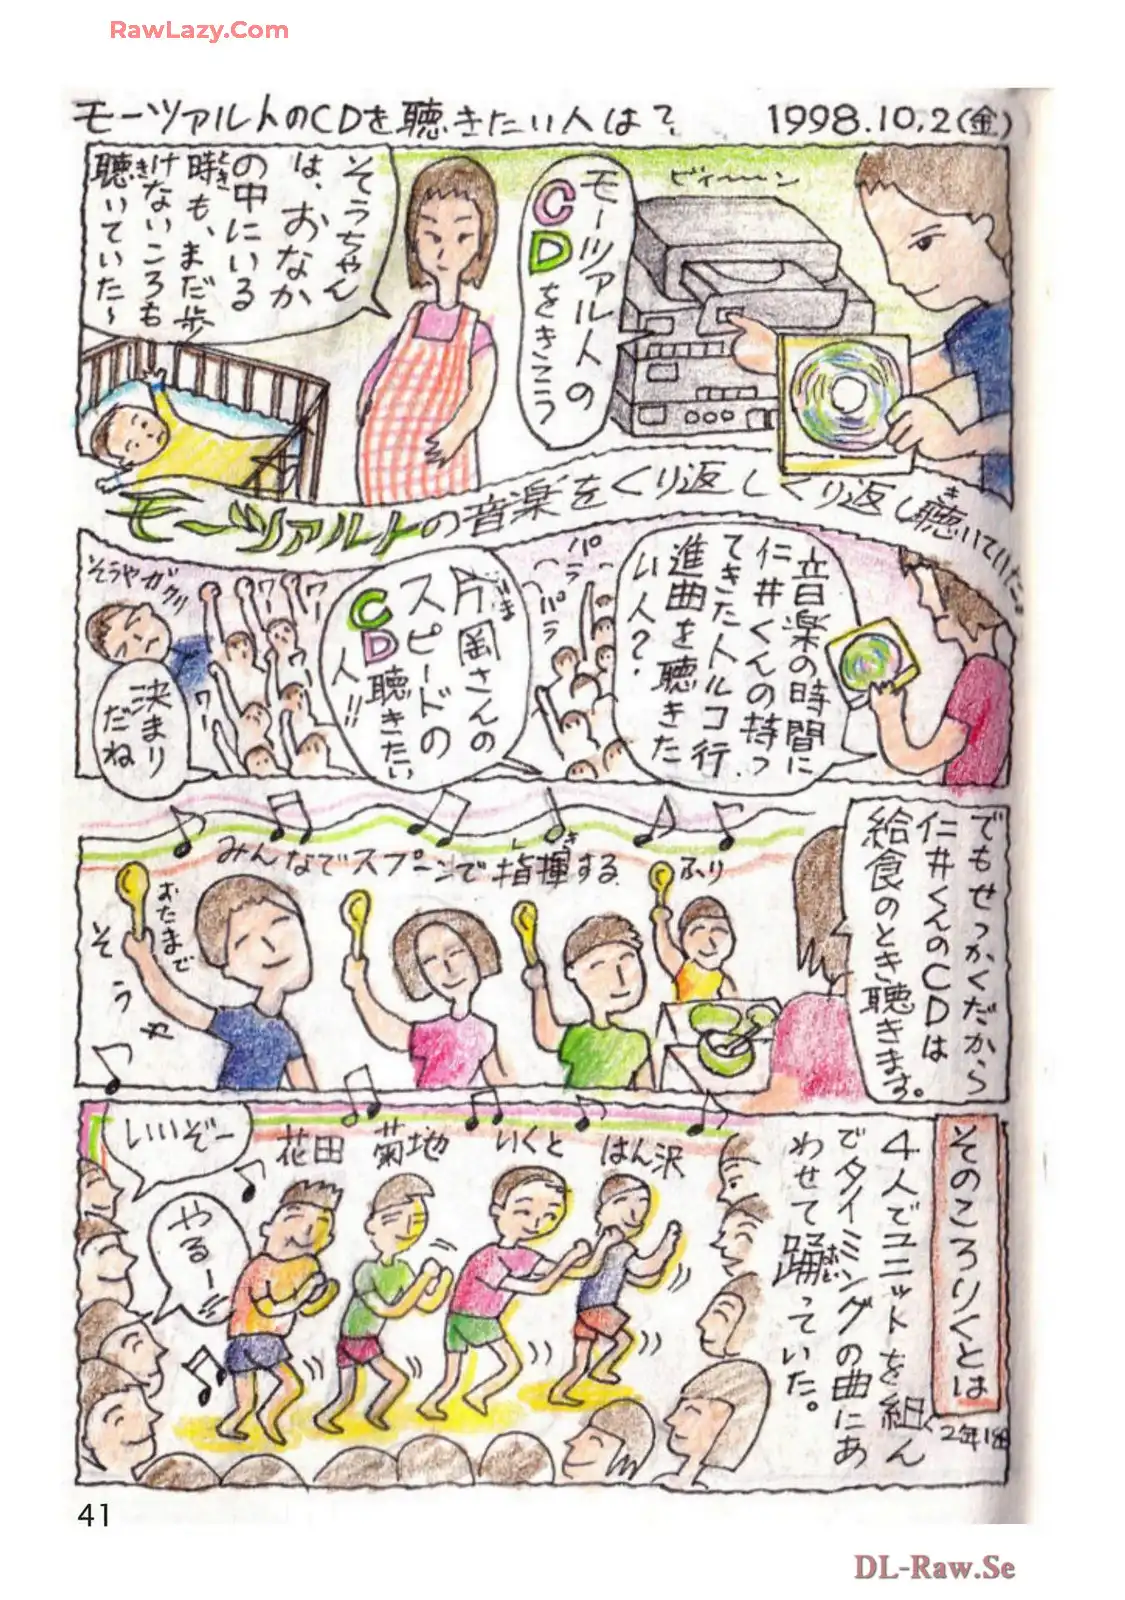 RawLazy.Com
モーツァルトのCDを聴きたい人は? 1998.10.2(金)
ビィーーン
モーツァルトの
CDをきこう
そうちゃん
は、おなか
の中にいる
時も、まだ歩
けないころも
聴いていた〜
モーツァルトの音楽をくり返しくり返し聴いていた。
音楽の時間に
仁井くんの持っ
てきたトルコ行
進曲を聴きた
い人?
パラ
パラ
片岡さんの
スピードの
CD聴きたい
人!!
ワー
ワー
ワー
ワー
そうやガクリ
決まり
だね
でもせっかくだから
仁井くんのCDは
給食のとき聴きます。
みんなでスプーンで指揮する
ふり
おたまで
そうや
そのころりくとは
2年1組
4人でユニットを組ん
でタイミングの曲にあ
わせて踊っていた。
花田 菊地 いくと はん沢
いいぞー
やるー!!
41
DL-Raw.Se